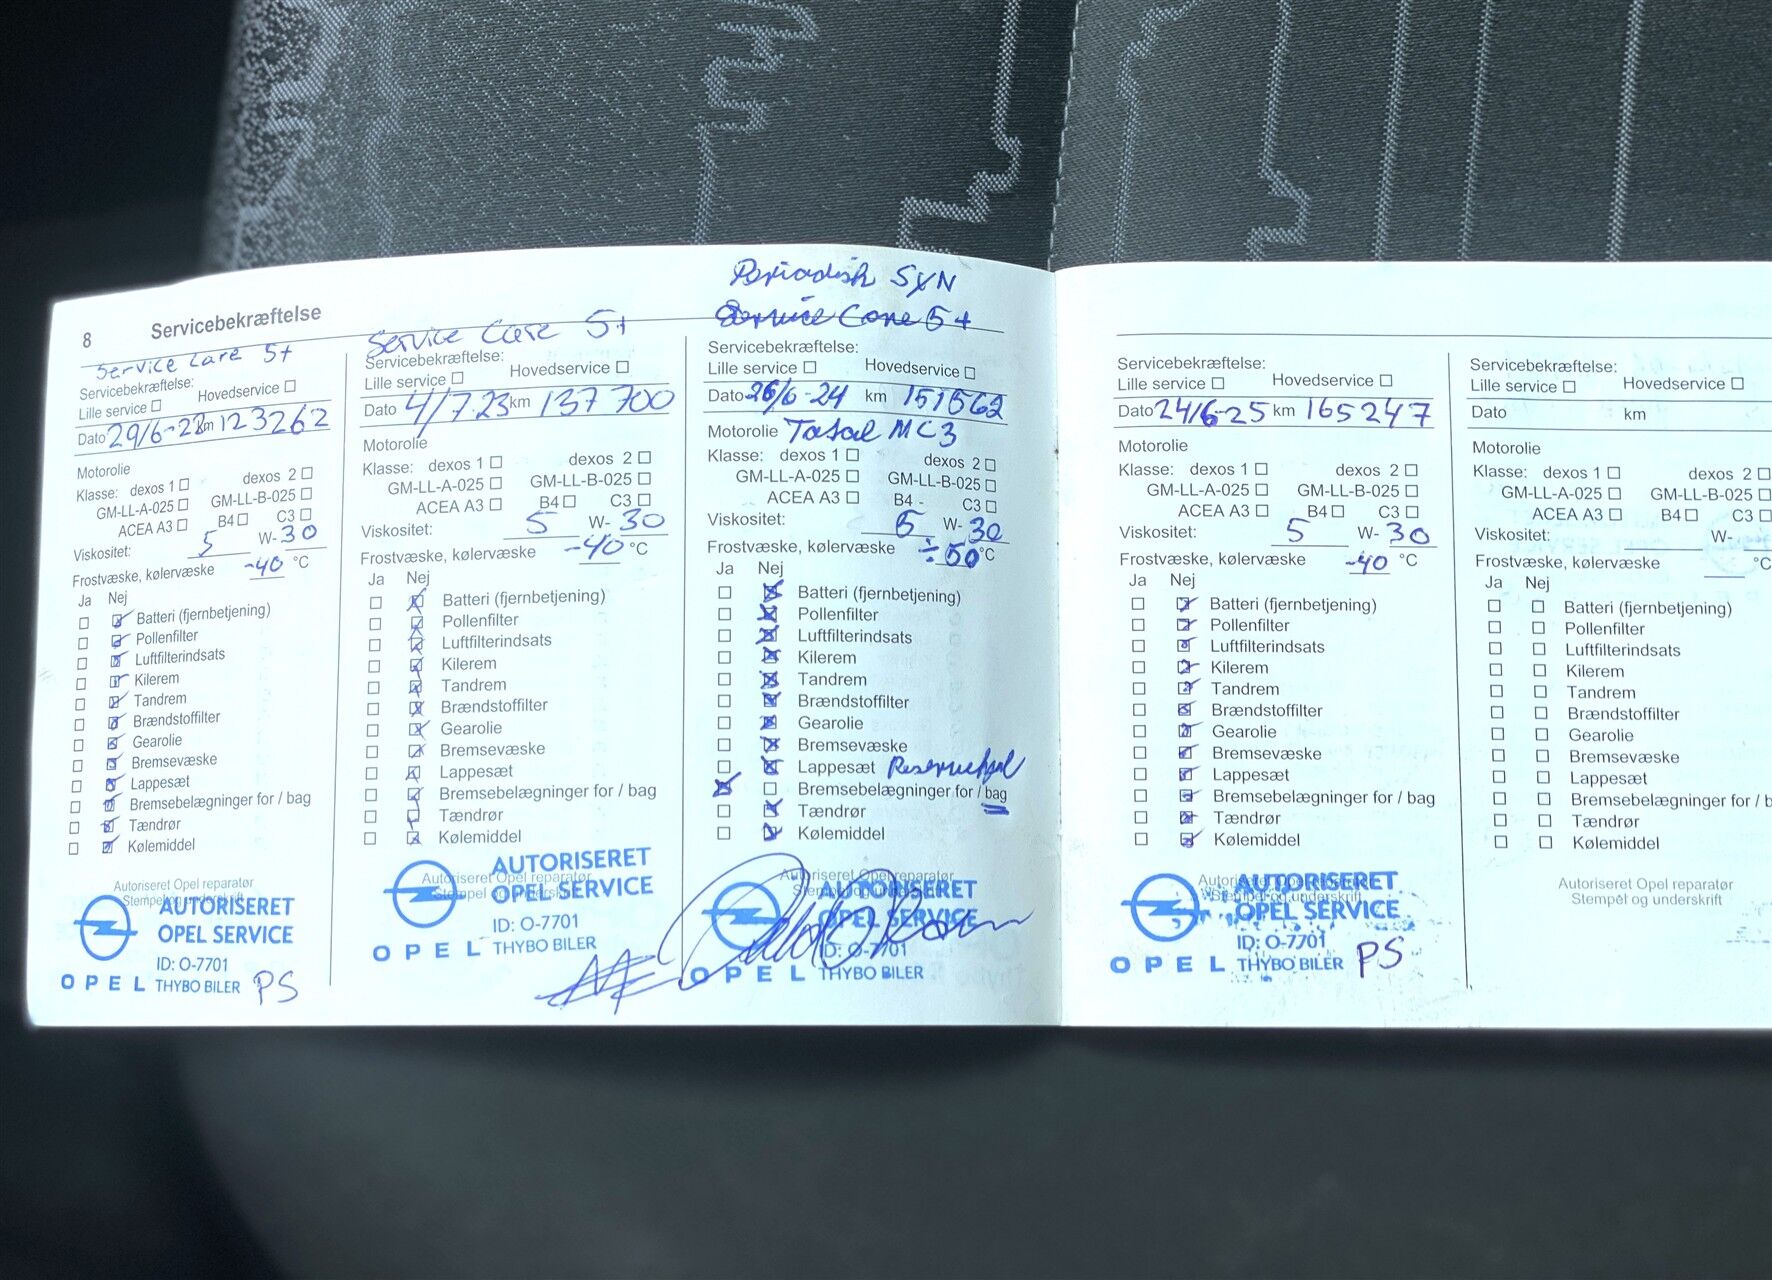 8 Servicebekræftelse
Service Care 5+
Servicebekræftelse:
Lille service ☐ Hovedservice ☐
Dato 29/6-22 km 123262
Motorolie
Klasse: dexos 1 ☐ dexos 2 ☐
GM-LL-A-025 ☐ GM-LL-B-025 ☐
ACEA A3 ☐ B4 ☐ C3 ☐
Viskositet: 5 W- 30
Frostvæske, kølervæske -40 °C
Ja Nej
Batteri (fjernbetjening)
Pollenfilter
Luftfilterindsats
Kilerem
Tandrem
Brændstoffilter
Gearolie
Bremsevæske
Lappesæt
Bremsebelægninger for / bag
Tændrør
Kølemiddel
Autoriseret Opel reparatør
Stempel og underskrift
AUTORISERET
OPEL SERVICE
ID: O-7701
OPEL THYBO BILER PS
Service Care 5+
Servicebekræftelse:
Lille service ☐ Hovedservice ☐
Dato 4/7.23 km 137 700
Motorolie
Klasse: dexos 1 ☐ dexos 2 ☐
GM-LL-A-025 ☐ GM-LL-B-025 ☐
ACEA A3 ☐ B4 ☐ C3 ☐
Viskositet: 5 W- 30
Frostvæske, kølervæske -40 °C
Ja Nej
Batteri (fjernbetjening)
Pollenfilter
Luftfilterindsats
Kilerem
Tandrem
Brændstoffilter
Gearolie
Bremsevæske
Lappesæt
Bremsebelægninger for / bag
Tændrør
Kølemiddel
Autoriseret Opel reparatør
Stempel og underskrift
AUTORISERET
OPEL SERVICE
ID: O-7701
OPEL THYBO BILER
Periodisk SYN
Service Care 5+
Servicebekræftelse:
Lille service ☐ Hovedservice ☐
Dato 26/6-24 km 151562
Motorolie Total MC3
Klasse: dexos 1 ☐ dexos 2 ☐
GM-LL-A-025 ☐ GM-LL-B-025 ☐
ACEA A3 ☐ B4 - C3 ☐
Viskositet: 5 W- 30
Frostvæske, kølervæske ÷50 °C
Ja Nej
Batteri (fjernbetjening)
Pollenfilter
Luftfilterindsats
Kilerem
Tandrem
Brændstoffilter
Gearolie
Bremsevæske
Lappesæt Reservehjul
Bremsebelægninger for / bag
Tændrør
Kølemiddel
Autoriseret Opel reparatør
Stempel og underskrift
AUTORISERET
OPEL SERVICE
ID: O-7701
OPEL THYBO BILER
Servicebekræftelse:
Lille service ☐ Hovedservice ☐
Dato 24/6-25 km 165247
Motorolie
Klasse: dexos 1 ☐ dexos 2 ☐
GM-LL-A-025 ☐ GM-LL-B-025 ☐
ACEA A3 ☐ B4 ☐ C3 ☐
Viskositet: 5 W- 30
Frostvæske, kølervæske -40 °C
Ja Nej
Batteri (fjernbetjening)
Pollenfilter
Luftfilterindsats
Kilerem
Tandrem
Brændstoffilter
Gearolie
Bremsevæske
Lappesæt
Bremsebelægninger for / bag
Tændrør
Kølemiddel
Autoriseret Opel reparatør
Stempel og underskrift
AUTORISERET
OPEL SERVICE
ID: O-7701
OPEL THYBO BILER PS
Servicebekræftelse:
Lille service ☐ Hovedservice ☐
Dato km
Motorolie
Klasse: dexos 1 ☐ dexos 2 ☐
GM-LL-A-025 ☐ GM-LL-B-025 ☐
ACEA A3 ☐ B4 ☐ C3 ☐
Viskositet: W-
Frostvæske, kølervæske °C
Ja Nej
Batteri (fjernbetjening)
Pollenfilter
Luftfilterindsats
Kilerem
Tandrem
Brændstoffilter
Gearolie
Bremsevæske
Lappesæt
Bremsebelægninger for / b
Tændrør
Kølemiddel
Autoriseret Opel reparatør
Stempel og underskrift